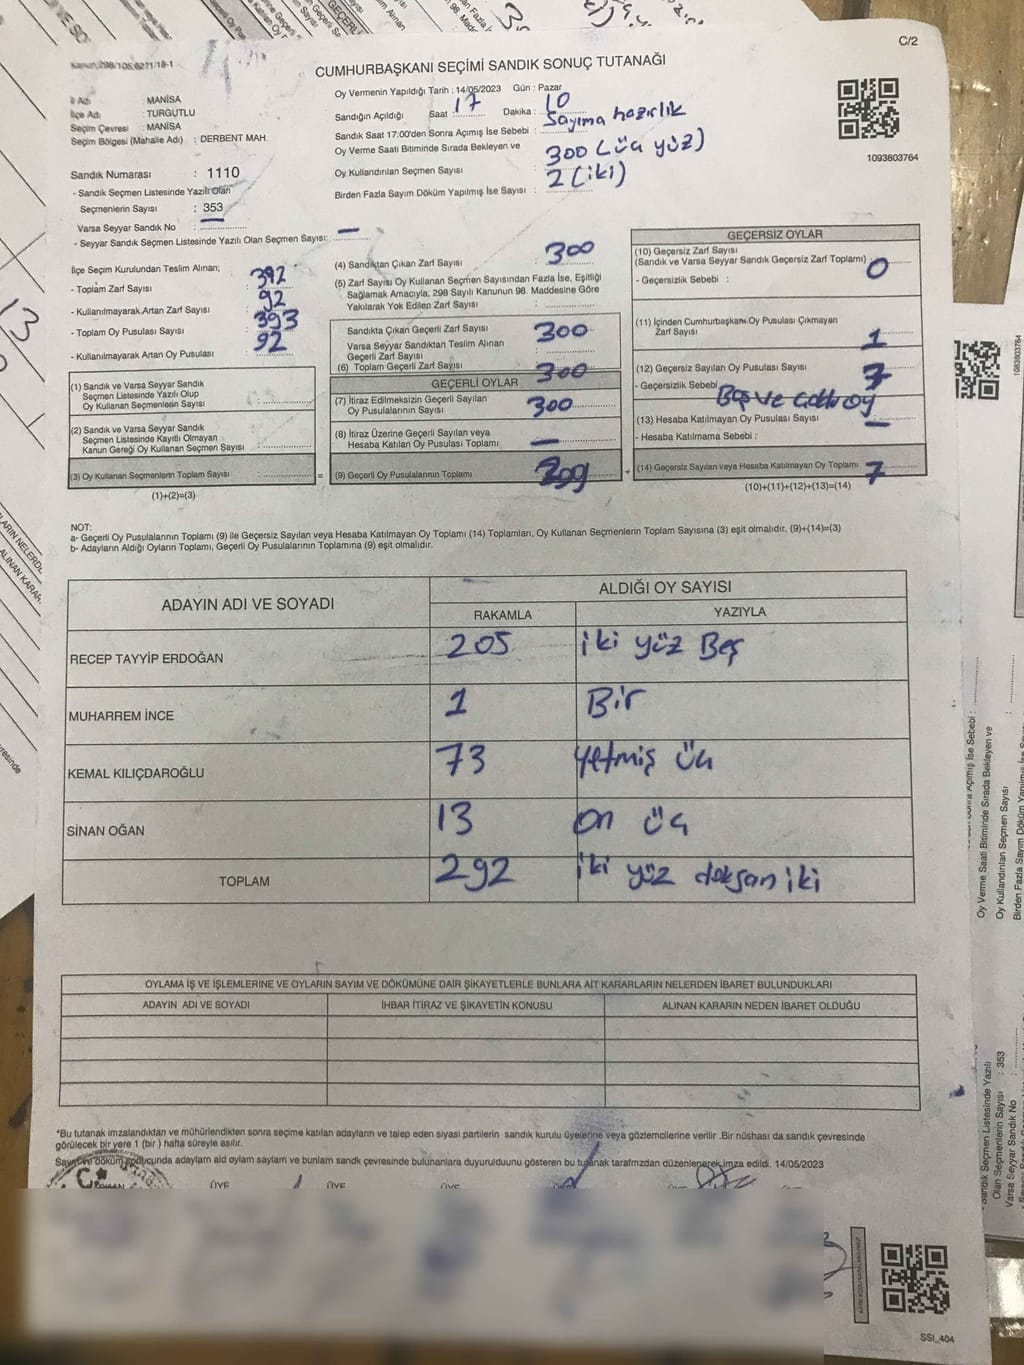 C/2
Kanun,298/105,6271/18-1
CUMHURBAŞKANI SEÇİMİ SANDIK SONUÇ TUTANAĞI
İl Adı : MANİSA
İlçe Adı : TURGUTLU
Seçim Çevresi : MANİSA
Seçim Bölgesi (Mahalle Adı) : DERBENT MAH.
Sandık Numarası : 1110
- Sandık Seçmen Listesinde Yazılı Olan
Seçmenlerin Sayısı : 353
Varsa Seyyar Sandık No : —
- Seyyar Sandık Seçmen Listesinde Yazılı Olan Seçmen Sayısı: —
Oy Vermenin Yapıldığı Tarih : 14/05/2023 Gün : Pazar
Sandığın Açıldığı Saat 17 Dakika : 10
Sandık Saat 17:00'den Sonra Açımış İse Sebebi : Sayıma hazırlık
Oy Verme Saati Bitiminde Sırada Bekleyen ve
Oy Kullandırılan Seçmen Sayısı : 300 (üç yüz)
Birden Fazla Sayım Döküm Yapılmış İse Sayısı : 2 (iki)
1093803764
İlçe Seçim Kurulundan Teslim Alınan;
- Toplam Zarf Sayısı : 392
- Kullanılmayarak Artan Zarf Sayısı : 92
- Toplam Oy Pusulası Sayısı : 393
- Kullanılmayarak Artan Oy Pusulası : 92
(1) Sandık ve Varsa Seyyar Sandık
Seçmen Listesinde Yazılı Olup
Oy Kullanan Seçmenlerin Sayısı :
(2) Sandık ve Varsa Seyyar Sandık
Seçmen Listesinde Kayıtlı Olmayan
Kanun Gereği Oy Kullanan Seçmen Sayısı :
(3) Oy Kullanan Seçmenlerin Toplam Sayısı : =
(1)+(2)=(3)
(4) Sandıktan Çıkan Zarf Sayısı : 300
(5) Zarf Sayısı Oy Kullanan Seçmen Sayısından Fazla İse, Eşitliği
Sağlamak Amacıyla; 298 Sayılı Kanunun 98. Maddesine Göre
Yakılarak Yok Edilen Zarf Sayısı :
Sandıkta Çıkan Geçerli Zarf Sayısı : 300
Varsa Seyyar Sandıktan Teslim Alınan
Geçerli Zarf Sayısı :
(6) Toplam Geçerli Zarf Sayısı : 300
GEÇERLİ OYLAR
(7) İtiraz Edilmeksizin Geçerli Sayılan
Oy Pusulalarının Sayısı : 300
(8) İtiraz Üzerine Geçerli Sayılan veya
Hesaba Katılan Oy Pusulası Toplamı : —
(9) Geçerli Oy Pusulalarının Toplamı : +
GEÇERSİZ OYLAR
(10) Geçersiz Zarf Sayısı
(Sandık ve Varsa Seyyar Sandık Geçersiz Zarf Toplamı) 0
- Geçersizlik Sebebi :
(11) İçinden Cumhurbaşkanı Oy Pusulası Çıkmayan
Zarf Sayısı 1
(12) Geçersiz Sayılan Oy Pusulası Sayısı 7
- Geçersizlik Sebebi Boş ve
(13) Hesaba Katılmayan Oy Pusulası Sayısı —
- Hesaba Katılmama Sebebi :
(14) Geçersiz Sayılan veya Hesaba Katılmayan Oy Toplamı 7
(10)+(11)+(12)+(13)=(14)
NOT:
a- Geçerli Oy Pusulalarının Toplamı (9) ile Geçersiz Sayılan veya Hesaba Katılmayan Oy Toplamı (14) Toplamları, Oy Kullanan Seçmenlerin Toplam Sayısına (3) eşit olmalıdır. (9)+(14)=(3)
b- Adayların Aldığı Oyların Toplamı, Geçerli Oy Pusulalarının Toplamına (9) eşit olmalıdır.
ADAYIN ADI VE SOYADI ALDIĞI OY SAYISI
RAKAMLA YAZIYLA
RECEP TAYYİP ERDOĞAN 205 iki yüz Beş
MUHARREM İNCE 1 Bir
KEMAL KILIÇDAROĞLU 73 yetmiş üç
SİNAN OĞAN 13 on üç
TOPLAM 292 iki yüz doksan iki
OYLAMA İŞ VE İŞLEMLERİNE VE OYLARIN SAYIM VE DÖKÜMÜNE DAİR ŞİKAYETLERLE BUNLARA AİT KARARLARIN NELERDEN İBARET BULUNDUKLARI
ADAYIN ADI VE SOYADI İHBAR İTİRAZ VE ŞİKAYETİN KONUSU ALINAN KARARIN NEDEN İBARET OLDUĞU
*Bu tutanak imzalandıktan ve mühürlendikten sonra seçime katılan adayların ve talep eden siyasi partilerin sandık kurulu üyelerine veya gözlemcilerine verilir .Bir nüshası da sandık çevresinde
görülecek bir yere 1 (bir ) hafta süreyle asılır.
Sayım ve döküm sonucunda adayların ald oyların sayılam ve bunlarn sandk çevresinde bulunanlara duyurulduunu gösteren bu tutanak tarafmzdan düzenlenerek imza edildi. 14/05/2023
ÜYE ÜYE
SSI_404